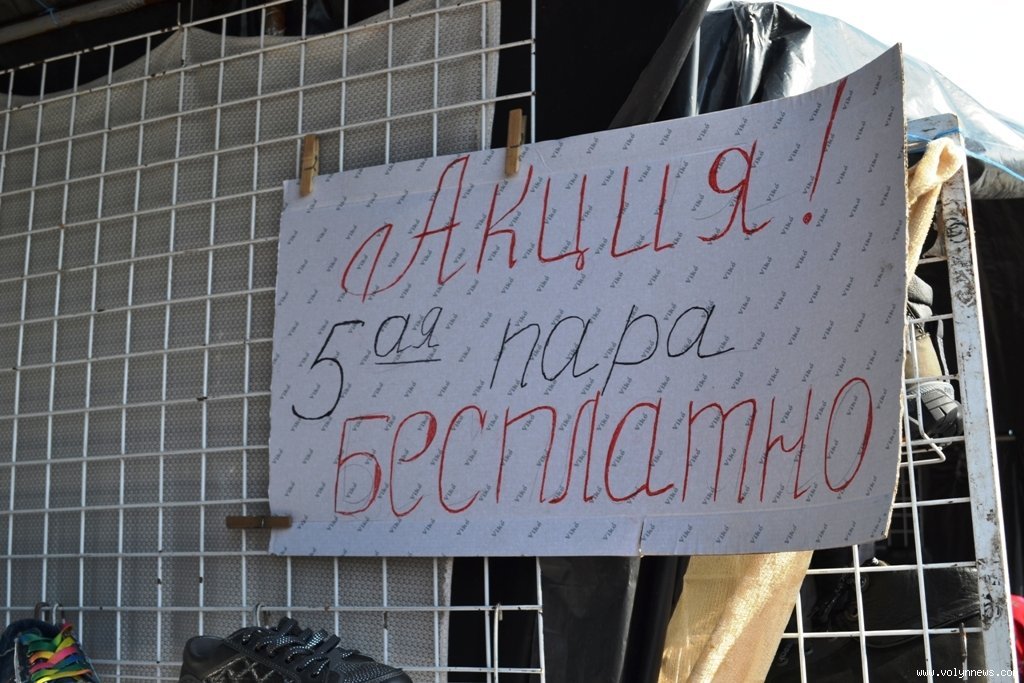 Акция!
5ая пара
Бесплатно
www.volynnews.com